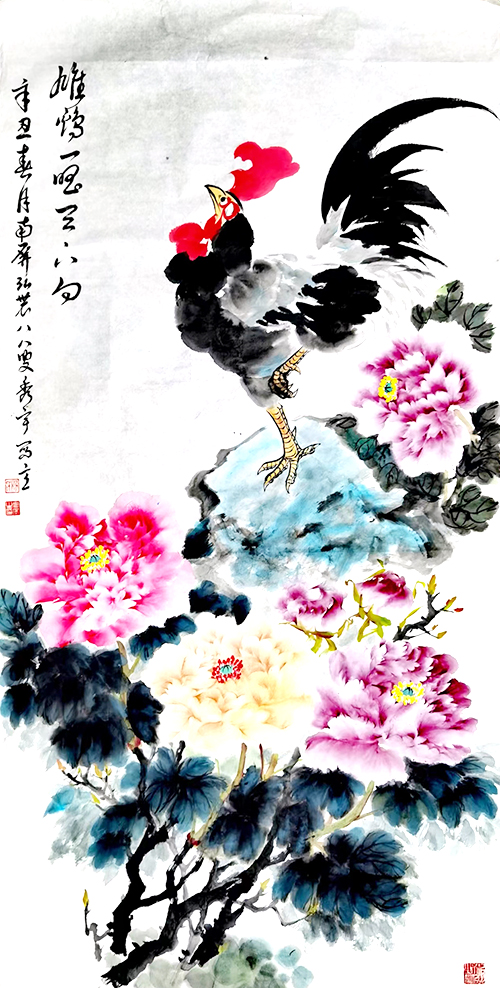 雄鸡一唱天下白
辛丑春月南屏弘農八八叟秀宇写意